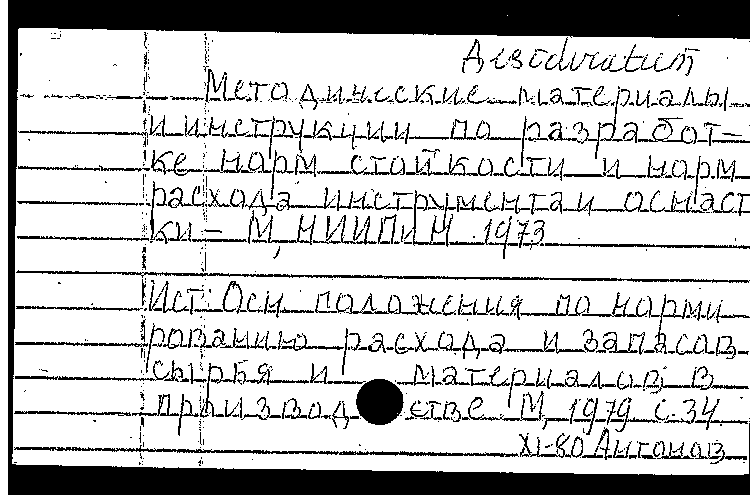 Desideratum
Методические материалы
и инструкции по разработ-
ке норм стойкости и норм
расхода инструмента и оснаст
ки - М, НИИПиН 1973
Ист: Осн положения по норми
рованию расхода и запасов
сырья и материалов в
производстве. М, 1979 с. 34
XI-80 Антонов